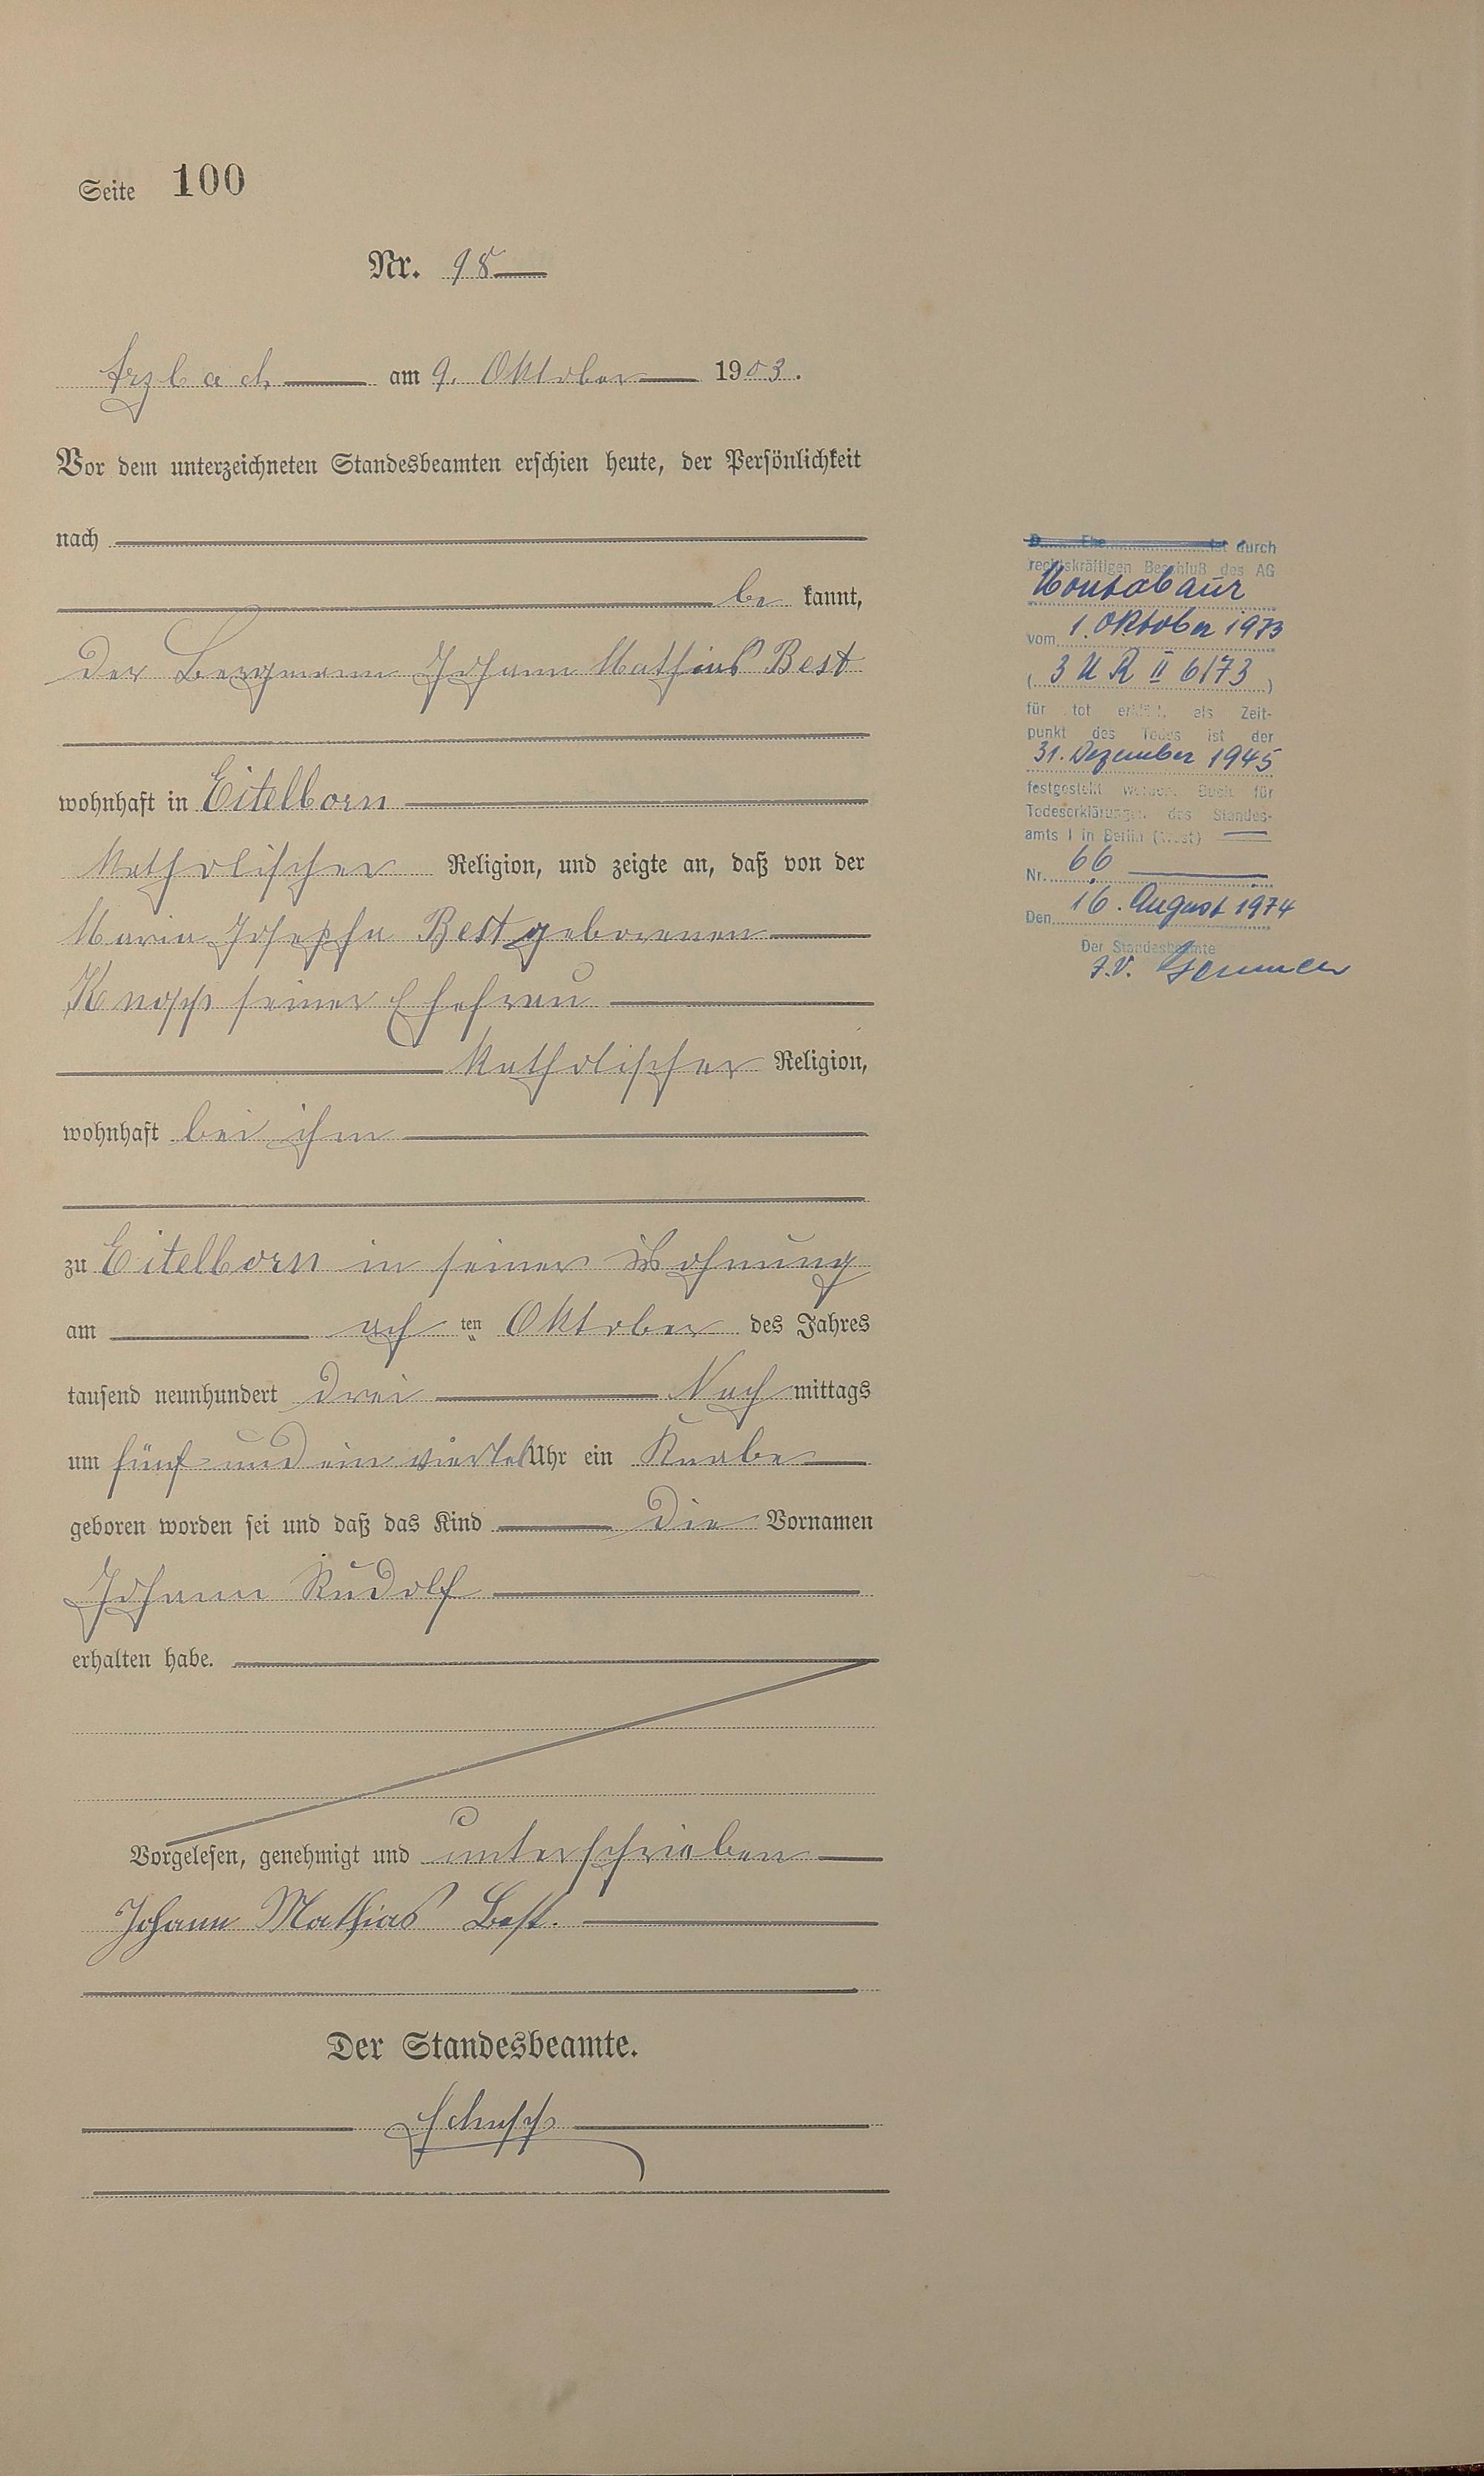 Seite 100
Nr. 98
Arzbach am 9. Oktober 1903.
Vor dem unterzeichneten Standesbeamten erschien heute, der Persönlichkeit
nach
be kannt,
der Bergmann Johann Mathias Best
wohnhaft in Eitelborn
katholischer Religion, und zeigte an, daß von der
Maria Josepha Best geborenen
Knopp seiner Ehefrau
katholischer Religion,
wohnhaft bei ihm
zu Eitelborn in seiner Wohnung
am ach ten Oktober des Jahres
tausend neunhundert drei Nach mittags
um fünf und ein viertel Uhr ein Knabe
geboren worden sei und daß das Kind die Vornamen
Johann Rudolf
erhalten habe.
Vorgelesen, genehmigt und unterschrieben
Johann Mathias Best.
Der Standesbeamte.
Schupp
D Ehe ist durch
rechtskräftigen Beschluß des AG
Montabaur
vom 1. Oktober 1973
( 3 U R II 6/73 )
für tot erklärt, als Zeit-
punkt des Todes ist der
31. Dezember 1945
festgestellt worden. Buch für
Todeserklärungen des Standes-
amts I in Berlin (West)
Nr. 66
Den 16. August 1974
Der Standesbeamte
I.V.